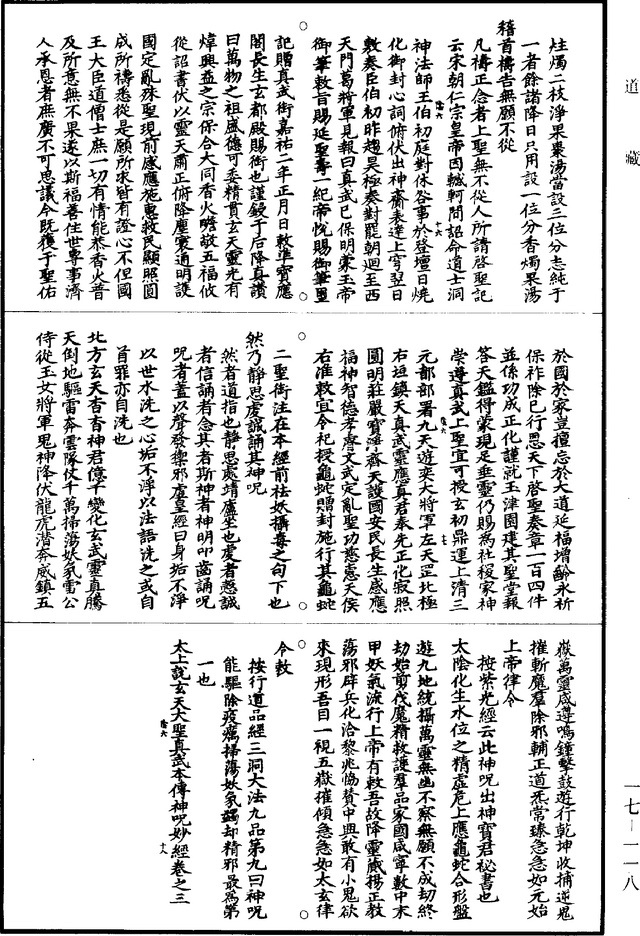 道藏
炷燭二枝淨果棗湯當設三位分志純于
一者餘諸降日只用設一位分香燭果湯
稽首禱告無願不從
凡禱正念者上聖無不從人所請啓聖記
云宋朝仁宗皇帝因轗軻問詔命道士洞
神法師王伯初庭對休咎事於登壇日燒
化御封心詞俯伏出神齋表達上宮翌日
敷奏臣伯初昨趨昊極奏對罷朝迴至西
天門葛將軍見報曰真武已保明蒙玉帝
御筆敕旨賜延聖壽一紀帝悅賜御筆畢
記贈真武銜嘉祐二年正月日敕準寶應
閣長生玄都殿賜銜也謹鋟于后降真讚
曰萬物之祖盛德可委精貫玄天靈光有
煒興益之宗保合大同香火瞻敬五福攸
從詔書伏以靈天肅正俯降塵寰通明護
國定亂殊聖現前感應施惠救民顯照圓
成所禱悉從是願所求皆有證心不但國
王大臣道僧士庶一切有情能恭香火普
及所意無不果遂以斯福善住世專事濟
人承恩者庶廣不可思議今既獲于聖佑
於國於家豈擅忘於大道延福增齡永祈
保祚除已行恩天下啓聖奏章一百四件
並係功成正化謹就玉津園建其聖堂報
答天鑑得蒙現足垂靈仍賜為社稷家神
崇導真武上聖宜可授玄初鼎運上清三
元都部署九天遊奕大將軍左天罡北極
右垣鎮天真武靈應真君奉先正化寂照
圓明莊嚴寶淨齊天護國安民長生感應
福神智德孝睿文武定亂聖功慈惠天侯
右准敕宜令祀授龜蛇贈封施行其龜蛇
二聖銜注在本經前袪妖攝毒之句下也
然乃靜思虔誠誦其神呪
然者道指也靜思處靖廬坐也虔者懇誠
者信誦者念其者斯神者神明叩齒誦呪
呪者蓋以聲發禦邪虛皇經曰身垢不淨
以世水洗之心垢不淨以法語洗之或自
首罪亦自洗也
北方玄天杳杳神君億千變化玄武靈真騰
天倒地驅雷奔雲隊仗千萬掃蕩妖氛雷公
侍從玉女將軍鬼神降伏龍虎潛奔威鎮五
嶽萬靈咸遵鳴鐘擊鼓遊行乾坤收捕逆鬼
摧斬魔羣除邪輔正道炁常臻急急如元始
上帝律令
按紫光經云此神呪出神寶君祕書也
太陰化生水位之精虛危上應龜蛇合形盤
遊九地統攝萬靈無幽不察無願不成劫終
劫始剪伐魔精救護羣品家國咸寧數中末
甲妖氣流行上帝有敕吾故降靈蔵揚正教
蕩邪辟兵化洽黎兆協賛中興敢有小鬼欲
來現形吾目一視五嶽摧傾急急如太玄律
令敕
按行道品經三洞大法九品第九曰神呪
能驅除疫癘掃蕩妖氛蠲却精邪最為第
一也
太上說玄天大聖真武本傳神呪妙經卷之三
一七—一一八